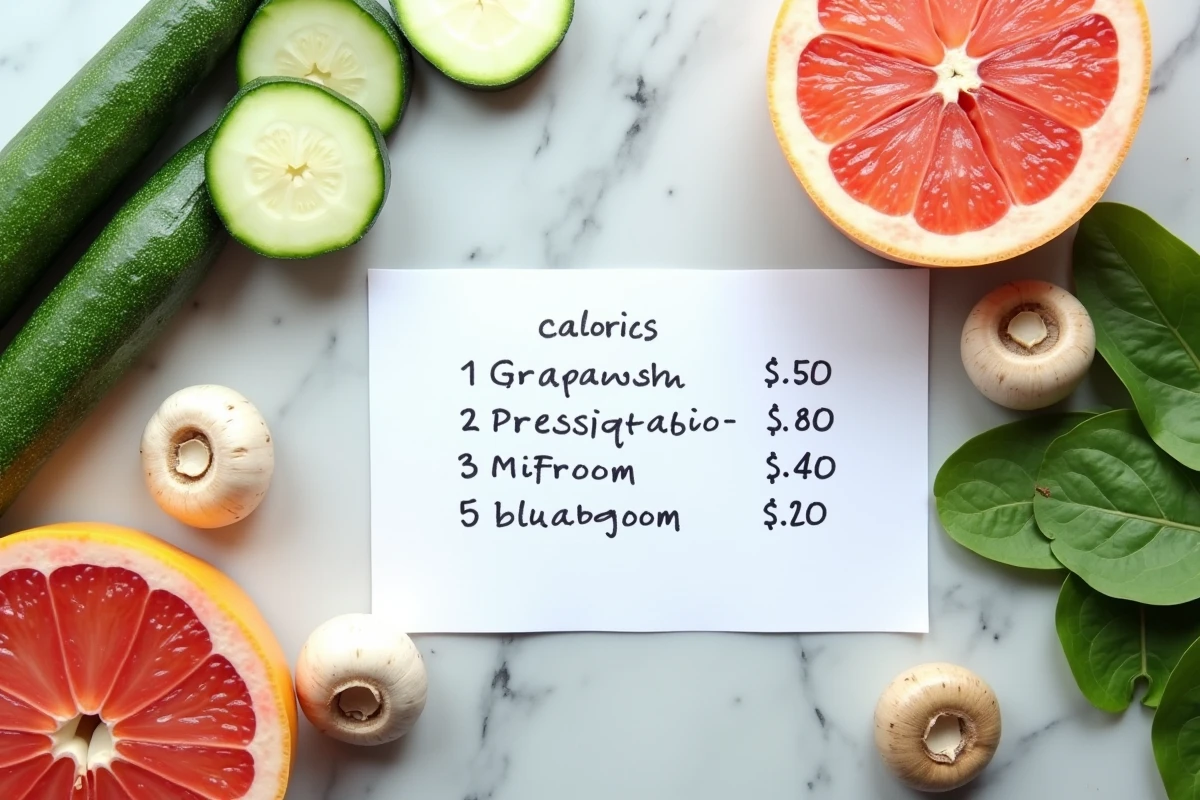 calorics
1 Grapawshn $.50
2 Pressiqtabio- $.80
3 MiFroom $.40
5 bluabgoom $.20